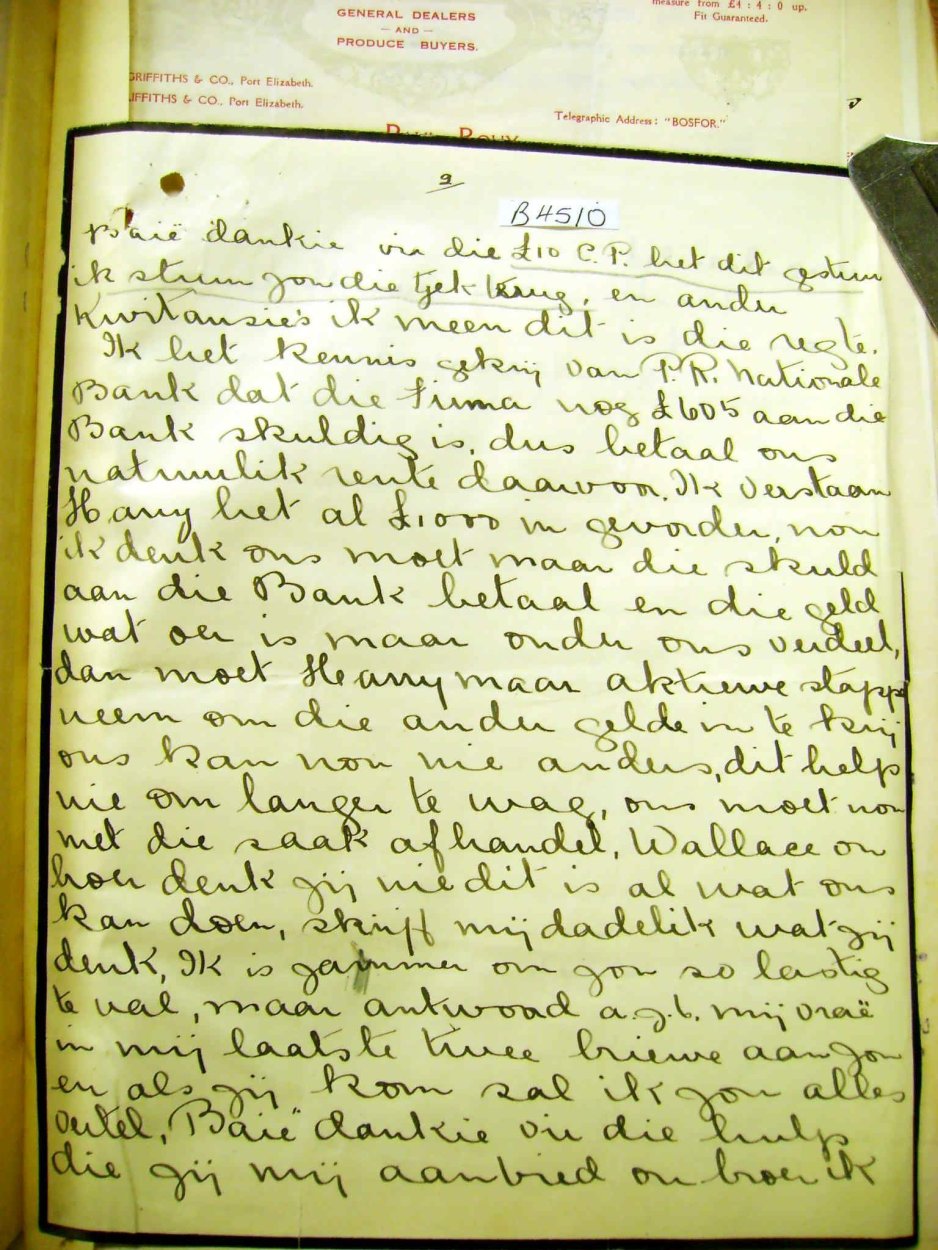 GENERAL DEALERS
— AND —
PRODUCE BUYERS.
measure from £4 : 4 : 0 up.
Fit Guaranteed.
GRIFFITHS & CO., Port Elizabeth.
IFFITHS & CO., Port Elizabeth.
Telegraphic Address: "BOSFOR."
B4510
Baië dankie vir die £10 C.P. het dit gestuur
ik stuur jou die tjek terug, en ander
Kwitansie's ik meen dit is die regte.
Ik het kennis gekrij van P.R. Nationale
Bank dat die Firma nog £605 aan die
Bank skuldig is, dus betaal ons
natuurlik rente daarvoor. Ik verstaan
Harry het al £1000 in gevorder, nou
ik denk ons moet maar die skuld
aan die Bank betaal en die geld
wat oer is maar onder ons verdeel,
dan moet Harry maar aktiewe stappe
neem om die ander gelde in te krij
ons kan nou nie anders, dit help
nie om langer te wag, ons moet nou
met die saak afhandel, Wallace ou
broer denk jij nie dit is al wat ons
kan doen, skrijf mij dadelik wat jij
denk, Ik is jammer om jou so lastig
te val, maar antwoord a.j.b. mij vraë
in mij laatste twee briewe aan jou
en als jij kom sal ik jou alles
vertel, Baië dankie vir die hulp
die jij mij aanbied ou broer ik